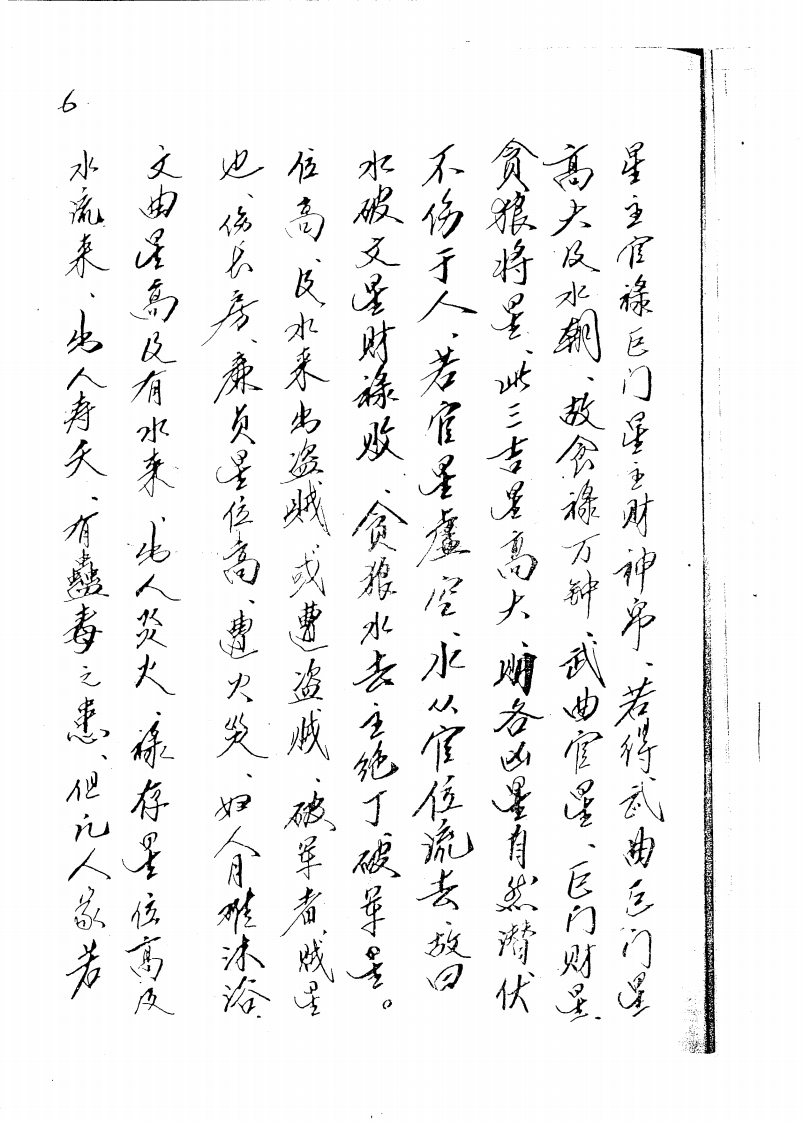 星主官禄巨门星主财神帛、若得武曲巨门星
高大及水朝、故食禄万钟、武曲官星、巨门财星、
贪狼将星、此三吉星高大、则各凶星自然潜伏
不伤于人、若官星虚空、水从官位流去故曰
水破文星财禄败、贪狼水去主绝丁、破军星。
位高、及水来出盗贼、或遭盗贼、破军者、贼星
也、伤长房、廉贞星位高、遭火災、妇人月难沐浴、
文曲星高及有水来、出人炎火、禄存星位高及
水流来、出人寿夭、有蠱毒之患、但凡人家若
6